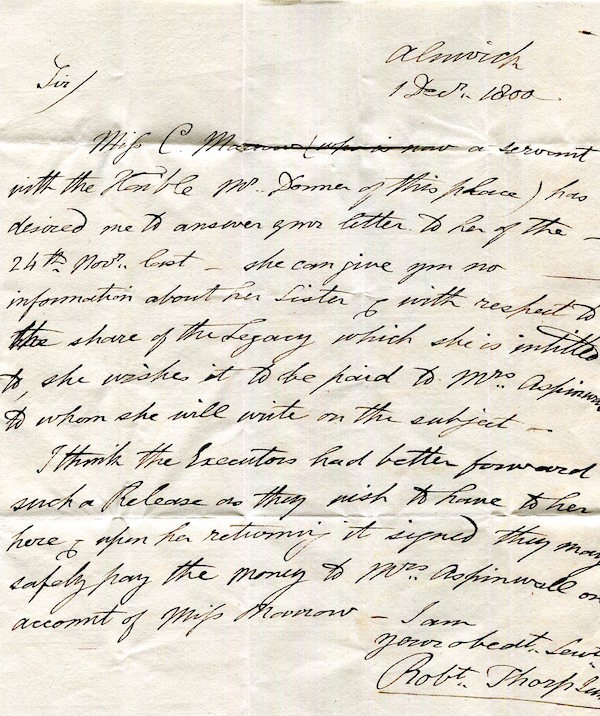 Alnwick
Sir/
1 Decr. 1800
Miss C. Marrow (who is now a servant
with the Honble Mr. Donner of this place) has
desired me to answer your letter to her of the –
24th Novr. last – she can give you no
information about her Sister & with respect to
the share of the Legacy which she is intitled
to, she wishes it to be paid to Mrs. Aspinwall
to whom she will write on the subject –
I think the Executors had better forward
such a Release as they wish to have to her
here & upon her returning it signed they may
safely pay the money to Mrs. Aspinwall on
account of Miss Marrow – I am
your obedt. Servt.
Robt. Thorp Jun